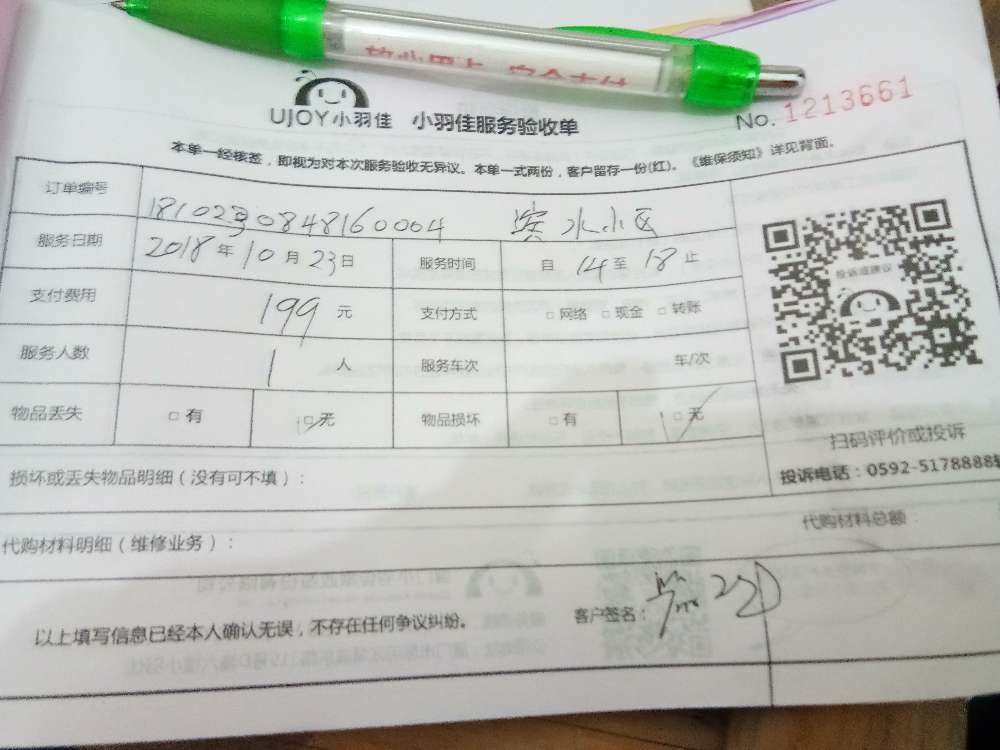 UJOY小羽佳 小羽佳服务验收单
No. 1213661
本单一经核签，即视为对本次服务验收无异议。本单一式两份，客户留存一份(红)。《维保须知》详见背面。
订单编号 1810230848160004 滨水小区
服务日期 2018年10月23日 服务时间 自14至18止
投诉或建议
支付费用 199元 支付方式 □网络 □现金 □转账
服务人数 1人 服务车次 车/次
物品丢失 □有 □无 物品损坏 □有 □无
扫码评价或投诉
投诉电话：0592-5178888转
损坏或丢失物品明细（没有可不填）：
代购材料总额
代购材料明细（维修业务）：
以上填写信息已经本人确认无误，不存在任何争议纠纷。 客户签名：